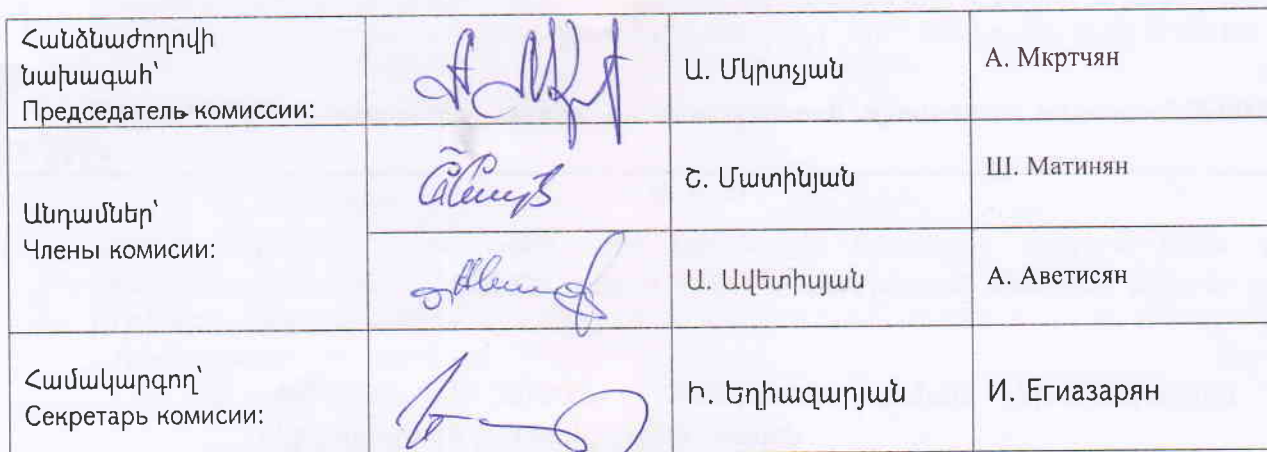 Հանձնաժողովի
նախագահ՝
Председатель комиссии:
Ա. Մկրտչյան
А. Мкртчян
Անդամներ՝
Члены комисии:
Շ. Մատինյան
Ш. Матинян
Ա. Ավետիսյան
А. Аветисян
Համակարգող՝
Секретарь комисии:
Ի. Եղիազարյան
И. Егиазарян